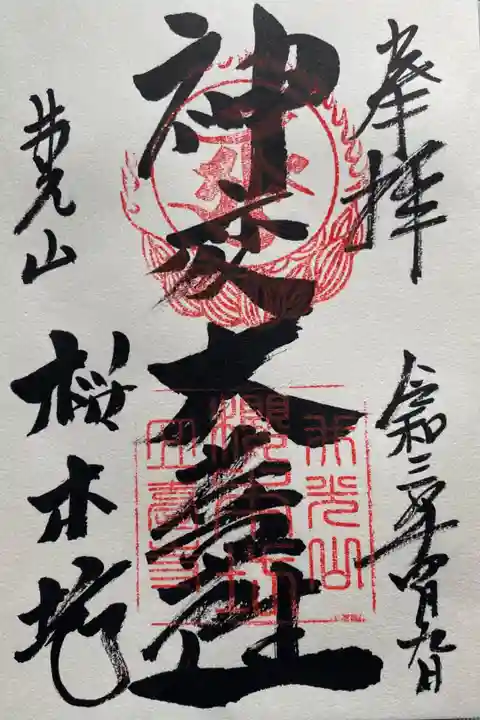 奉拝
令和三年四月九日
神変大菩薩
井光山
桜本坊
井光山
櫻本坊
五臺寺